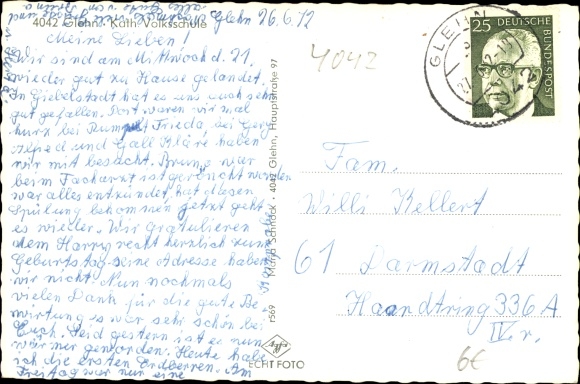 Glehn 26.6.72
4042 Glehn, Kath. Volksschule
Meine Lieben!
Wir sind am Mittwoch d. 21.
wieder gut zu Hause gelandet.
In Giebelstadt hat es uns auch sehr
gut gefallen. Dort waren wir mal
kurz bei Frieda, bei Georg
und haben
wir mit besucht. Bruno war
beim Facharzt ist geröncht worden
war alles entzündet, hat diesen
Spülung bekommen jetzt geht
es wieder. Wir gratulieren
dem Harry recht herzlich zum
Geburtstag seine Adresse haben
wir nicht. Nun nochmals
vielen Dank für die gute Be-
wirtung es war sehr schön bei
Euch. Seid gestern ist es nun
wärmer geworden. Heute habe
ich die ersten Erdberren. Am
Freitag war nur eine
4042 Glehn, Hauptstraße 97
r569
ECHT FOTO
4042
GLEHN
25 DEUTSCHE BUNDESPOST
Fam.
Willi Kellert
61 Darmstadt
Haardtring 336 A
IV. r.
6€